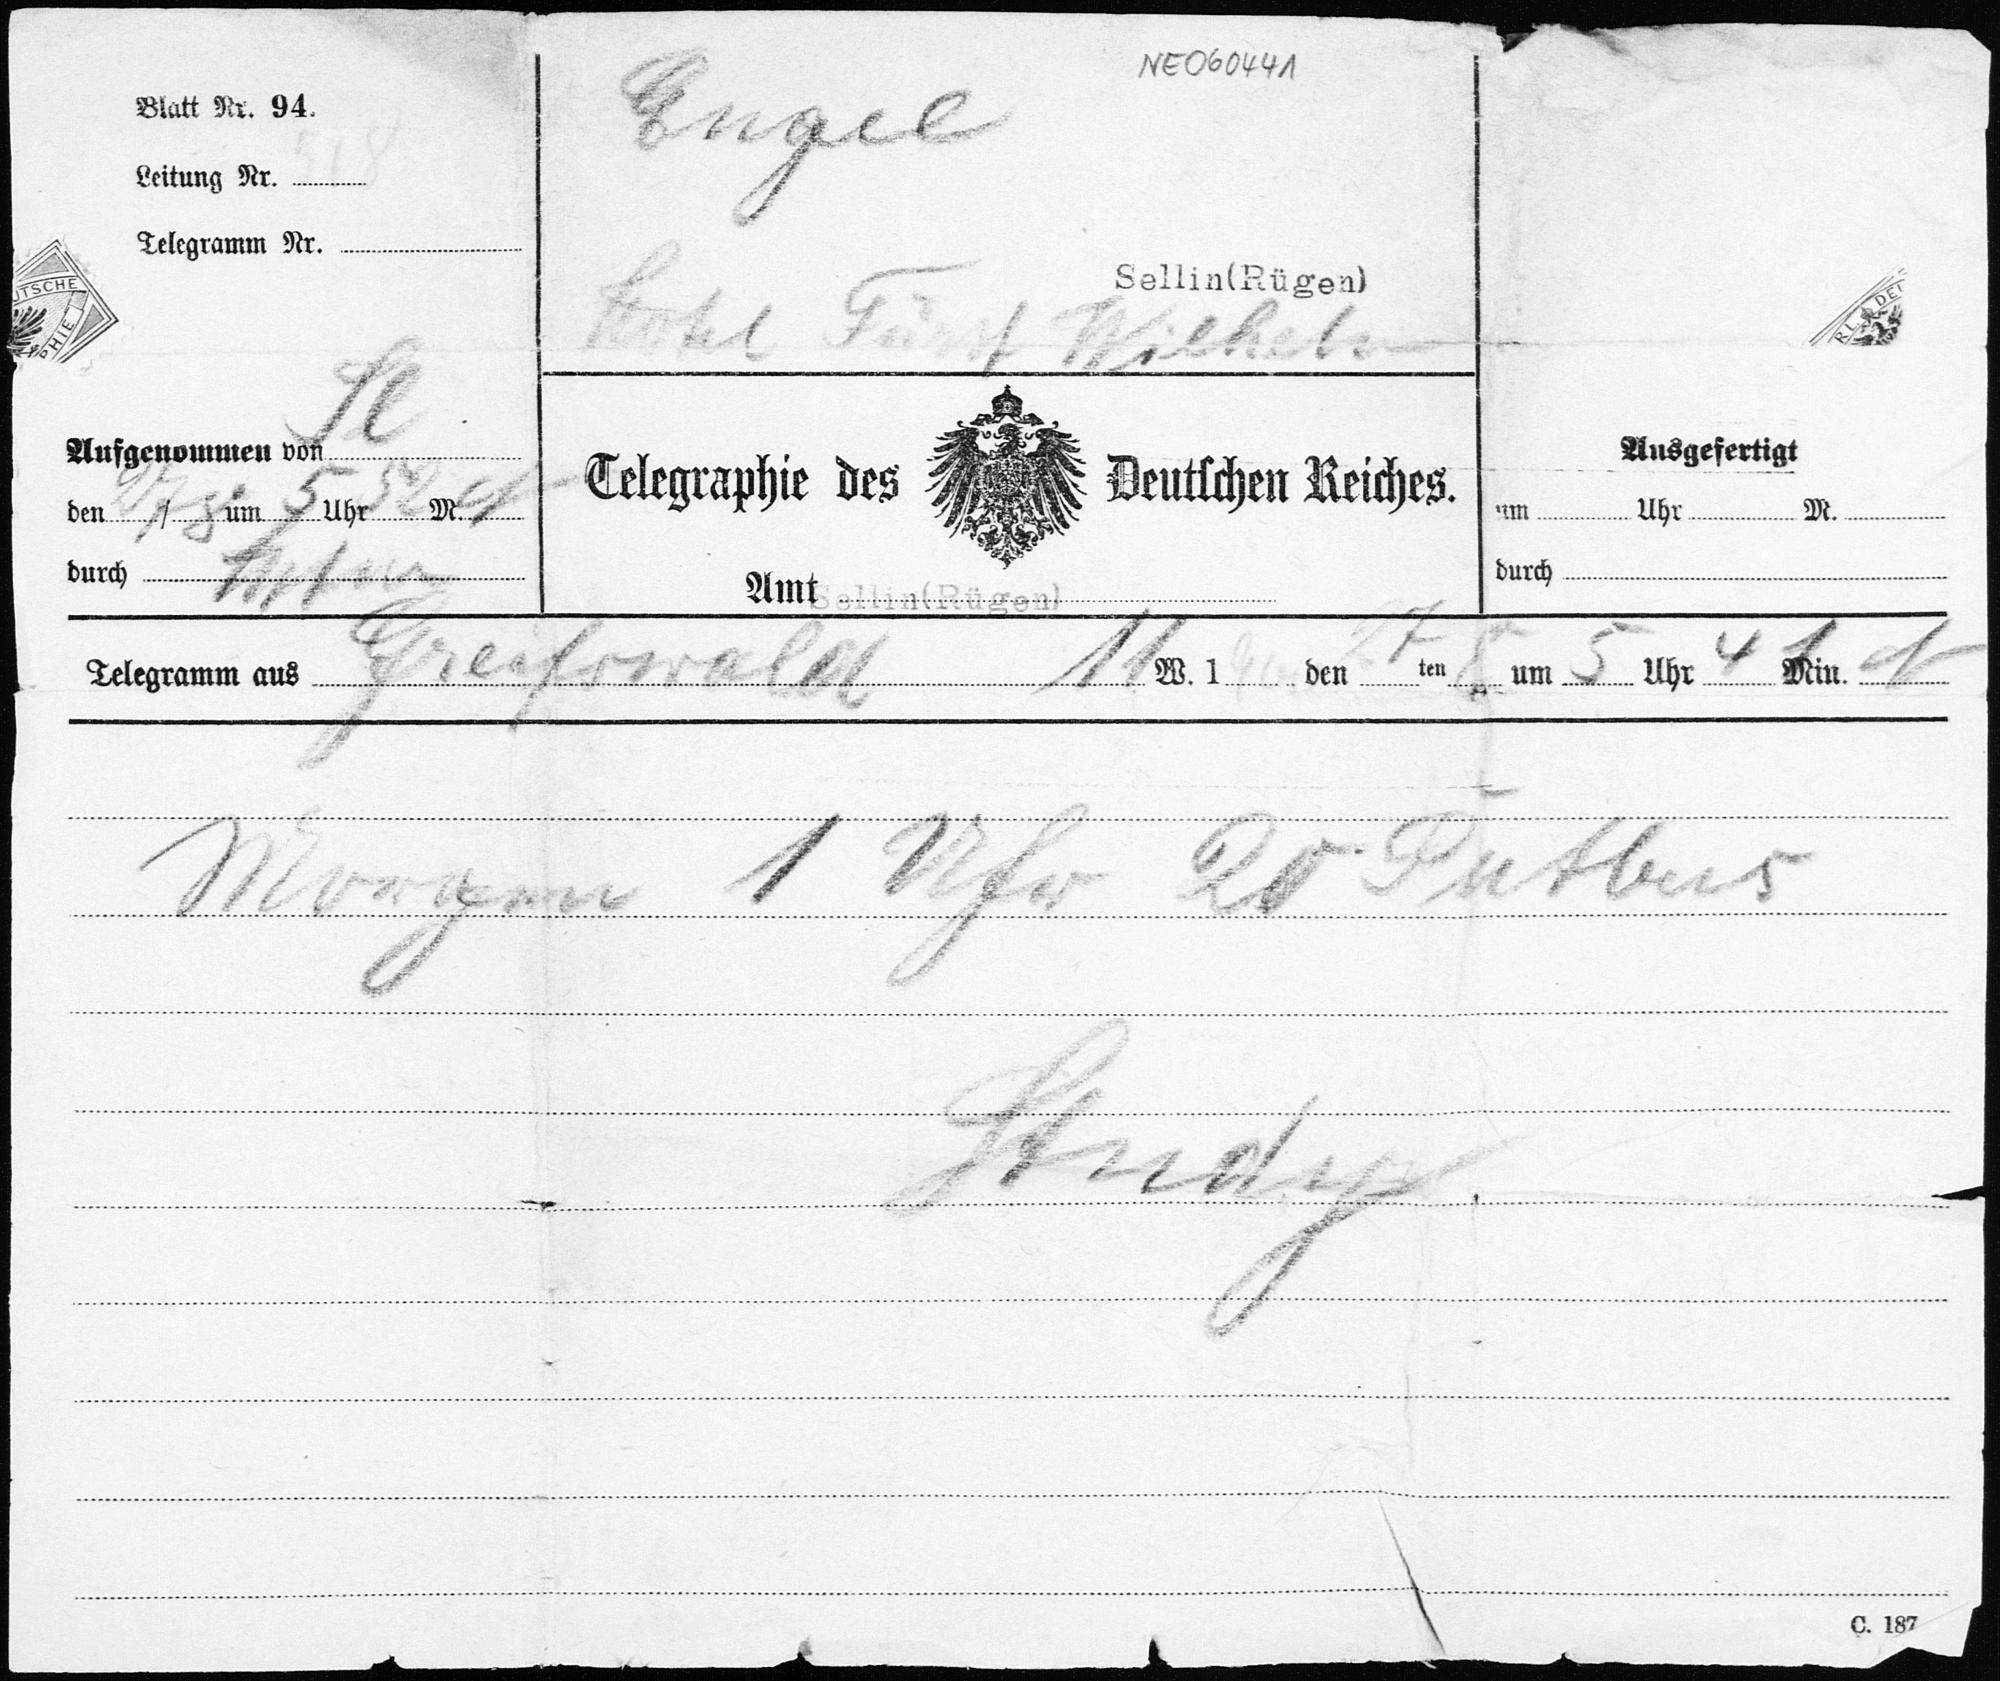 NE060441
Blatt Nr. 94.
Leitung Nr. 518
Telegramm Nr.
Engel
Sellin(Rügen)
Hotel Fürst Wilhelm
UTSCHE
PHIE
RL. DEU
Aufgenommen von Sl
den 27/8 um 5 Uhr 52 M.
durch
Telegraphie des Deutschen Reiches.
Amt Sellin(Rügen)
Ausgefertigt
um Uhr M.
durch
Telegramm aus Greifswald 11 W. 1 den 27 ten 8 um 5 Uhr 41 Min.
Morgen 1 Uhr 20 Putbus
Study
C. 187